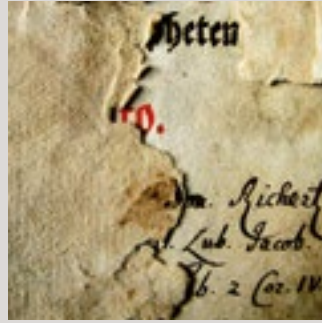 heten
ro.
Richert
Lub. Jacob.
2 Cor. IV